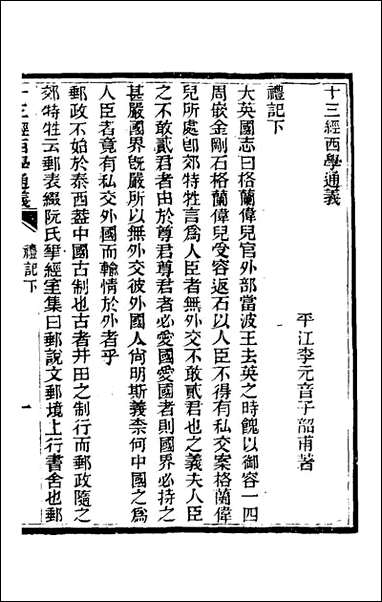 十三經西學通義
平江李元音子韶甫著
禮記下
大英國志曰格蘭偉兒官外部當波王去英之時餽以御容一四
周嵌金剛石格蘭偉兒受容返石以人臣不得有私交案格蘭偉
兒所處卽郊特牲言爲人臣者無外交不敢貳君也之義夫人臣
之不敢貳君者由於尊君尊君者必愛國愛國者則國界必持之
甚嚴國界旣嚴所以無外交彼外國人尙明斯義柰何中國之爲
人臣者竟有私交外國而輸情於外者乎
郵政不始於泰西葢中國古制也古者井田之制行而郵政隨之
郊特牲云郵表綴阮氏揅經室集曰郵說文郵境上行書舍也郵
十三經西學通義
禮記下
一